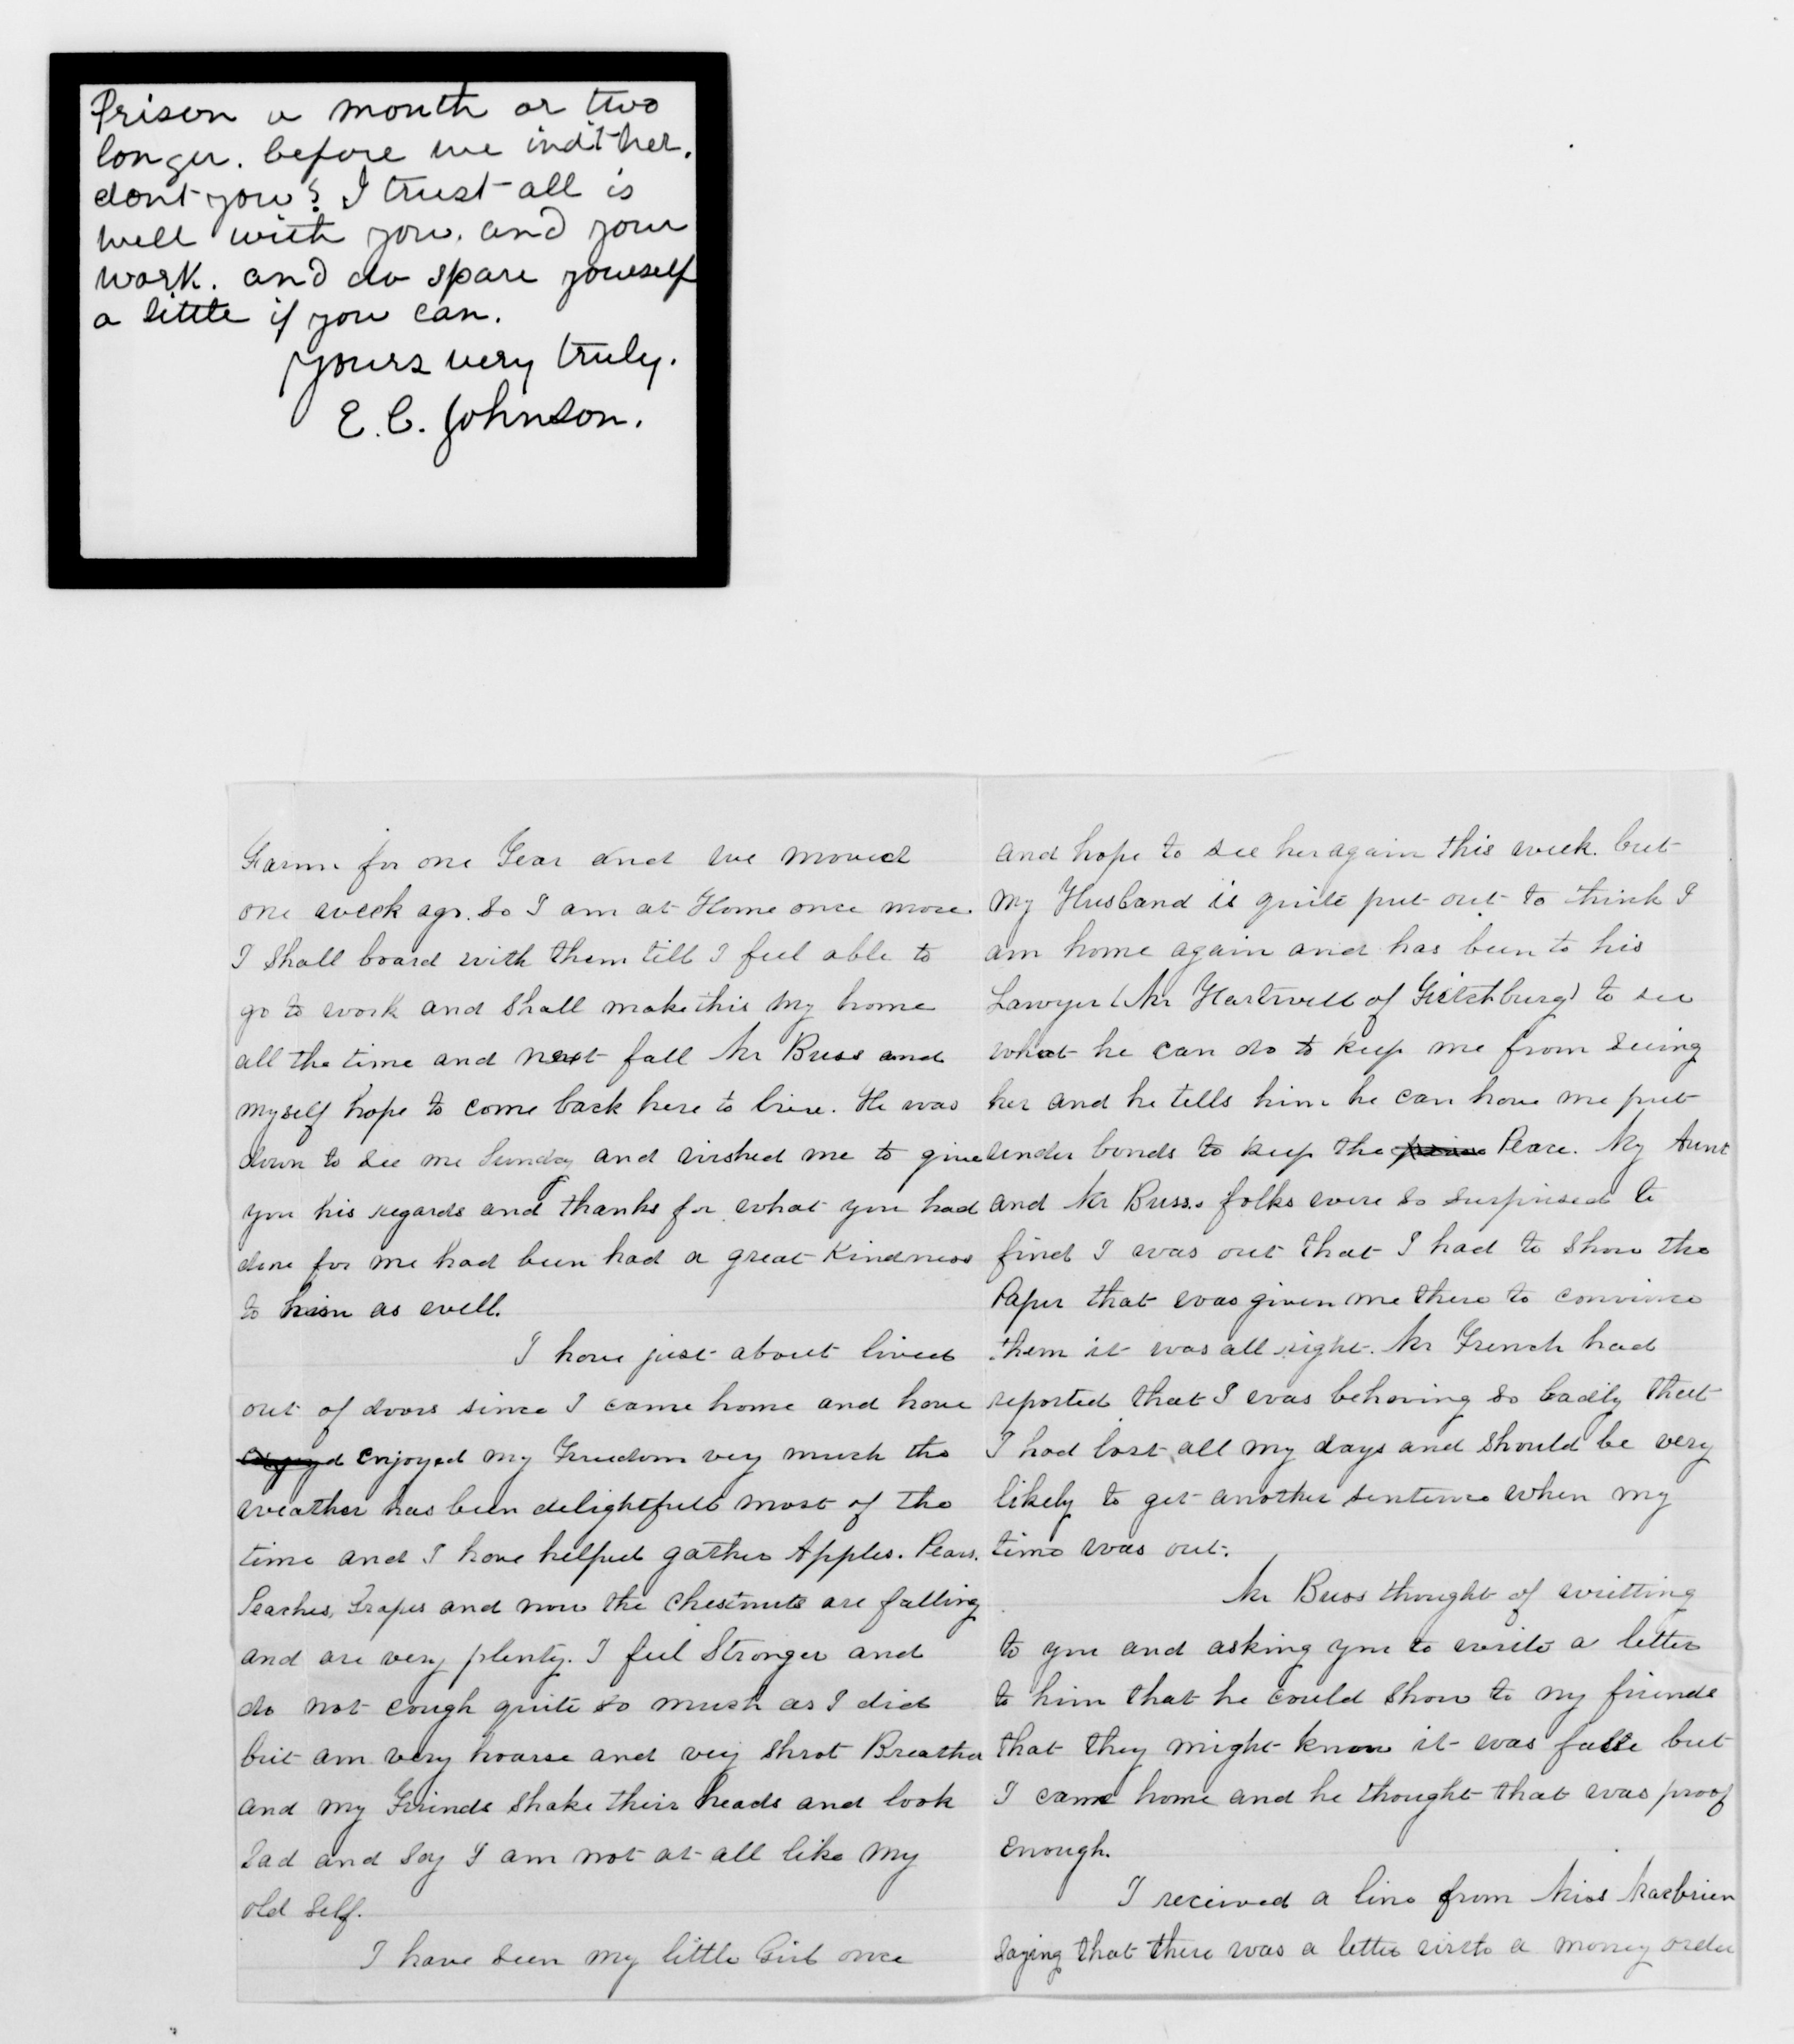 Prison a month or two
longer. before we indit her.
dont you? I trust all is
well with you. and your
work. and do spare youself
a little if you can.
yours very truly.
E. C. Johnson.
Farm for one Year and we moved
one week ago. So I am at Home once more.
I Shall board with them till I feel able to
go to work and Shall make this my home
all the time and next fall Mr Buss and
myself hope to come back here to live. He was
down to see me Sunday and wished me to give
you his regards and thanks for what you had
done for me had been had a great Kindness
to him as well.
I have just about lived
out of doors since I came home and have
enjoyed my Freedom very much the
weather has been delightfull most of the
time and I have helped gather Apples. Pears.
Peaches, Grapes and now the Chestnuts are falling
and are very plenty. I feel Stronger and
do not cough quite so much as I did
but am very hoarse and very Shrot Breathed
and my Friends Shake their heads and look
Sad and Say I am not at all like my
old Self.
I have seen my little Girl once
and hope to see her again this week. but
my Husband is quite put out to think I
am home again and has been to his
Lawyer (Mr Hartwell of Fitchburg) to see
what he can do to keep me from seeing
her and he tells him he can have me put
under bonds to keep the Peace. My Aunt
and Mr Buss.s folks were so surprised to
find I was out that I had to Show the
Paper that was given me there to convince
them it was all right. Mr French had
reported that I was behaving so badly that
I had lost all my days and should be very
likely to get another sentence when my
time was out.
Mr Buss thought of writting
to you and asking you to write a letter
to him that he could show to my friends
that they might know it was false but
I came home and he thought that was proof
enough.
I received a line from Miss
Saying that there was a letter with a money order